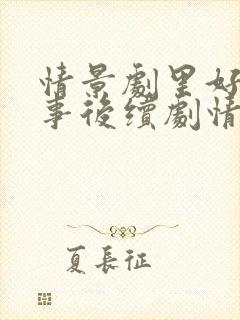 情景劇里好
事後續劇情
夏長征